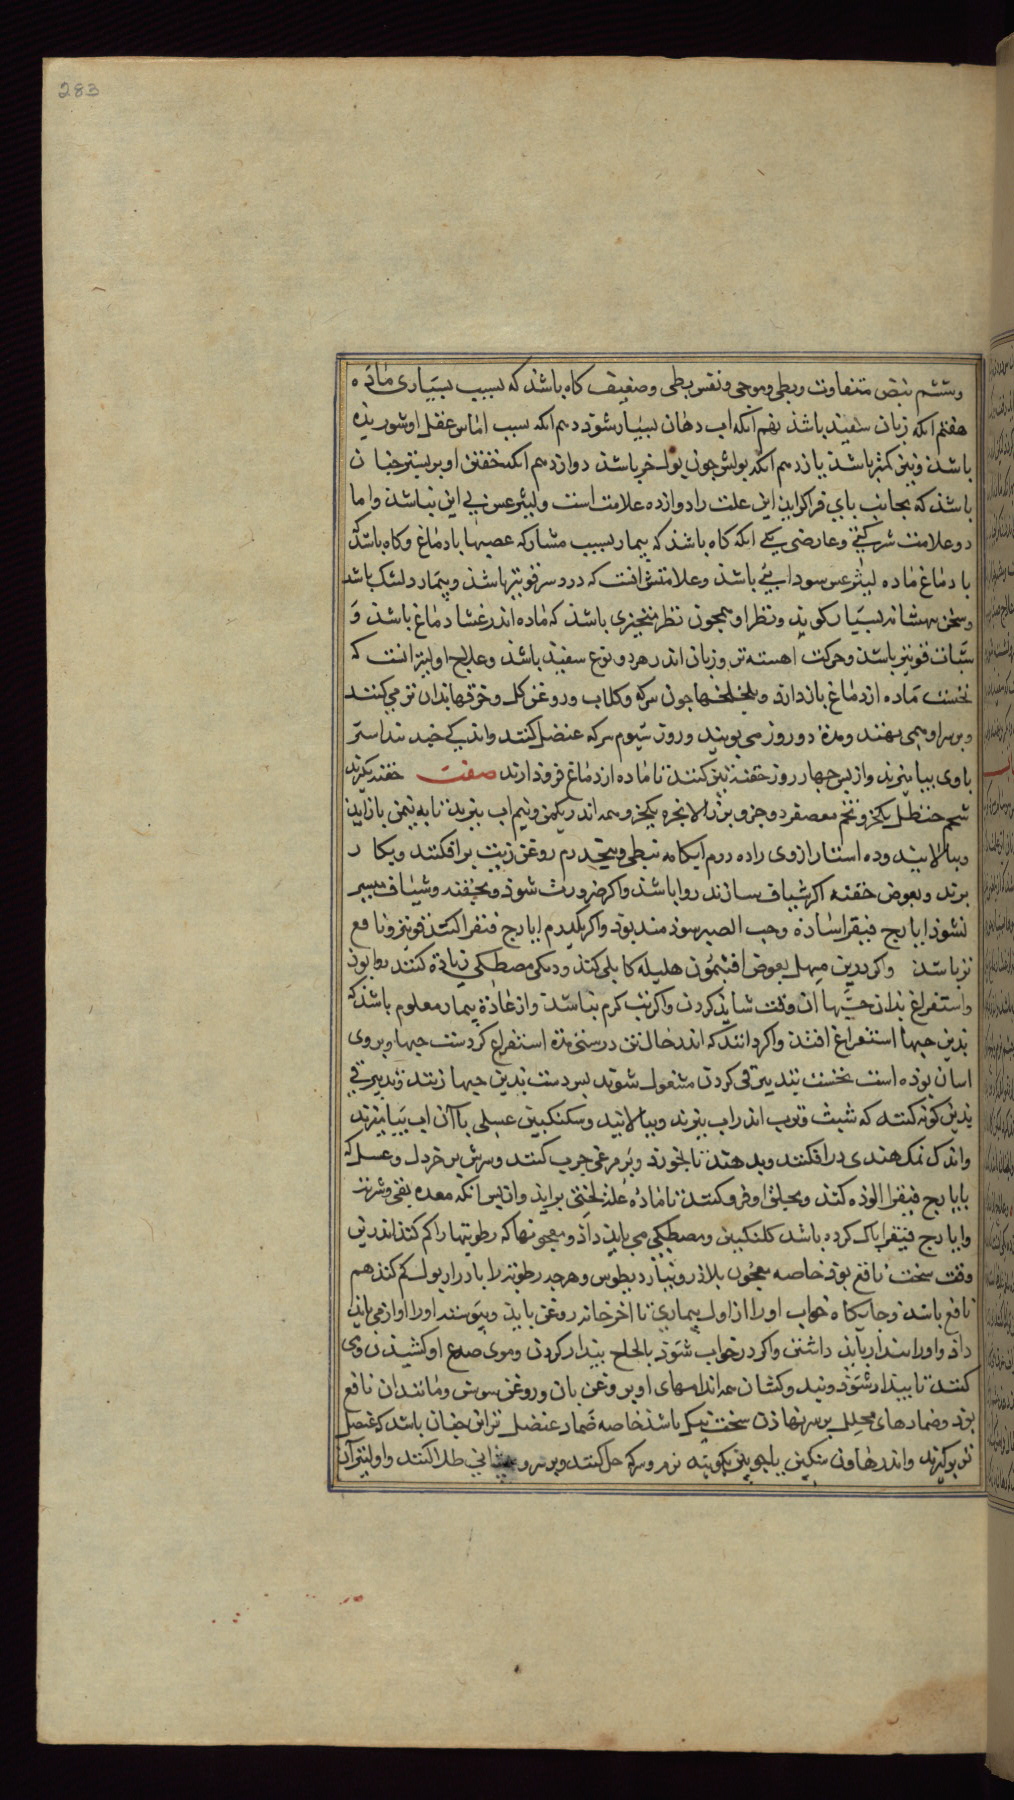 283
وششم نبض متفاوت وبطی وموجی ونفس بطی وضعیف کاه باشذ که بسبب بسیاری ماده
هفتم انکه زبان سفید باشذ نهم انکه اب دهان بسیار شوذ دهم انکه سبب اماس عقل او شوریذه
باشذ وتبش کمتر باشذ یازدهم انکه بولش جون بول خر باشذ دوازدهم انکه خفتن او بر بستر جنان
باشذ که بجانب پای فرا کراید این علت را دوازده علامتست ولیثرعس بی این نباشذ واما
دو علامت شرکتی وعارضی یکی انکه کاه باشذ که بیمار بسبب مشارکه عصبها با دماغ وکاه باشذ که
با دماغ ماده لیثرعس سودایی باشذ وعلامتش انست که درد سر قویتر باشذ وبیمار دلتنک باشد
وسخن بسیار کوید ونظر او همجون نظر متحیری باشذ که ماده اندر غشاء دماغ باشذ و
سبات قویتر باشذ وحرکت اهسته تر وزبان اندر هر دو نوع سفید باشذ وعلاج اولیتر انست که
نخست ماده از دماغ باز دارند وبلخلخها جون سرکه وکلاب وروغن کل وخرقها بدان تر می کنند
وبر سر او همی نهند ومدة دو روز می بویند وروز سیوم سرکه عنصل کنند واندکی جند بیداستر
با وی بیامیزند واز پس جهار روز حقنه تیز کنند تا ماده از دماغ فروذ ارند صفت حقنه بکیرند
شحم حنظل یکجزو وتخم معصفر دو جزو وبزر الانجره یکجزو وهمه اندر یکمن ونیم اب بپزند تا به نیمن باز اید
وبپالایند وده استار از وی راده درم ایکامه نبطی وپنجدرم روغن زیت برافکنند وبکار
برند وبعوض حقنه اکر شیاف سازند روا باشذ واکر ضرورت شوذ وبحقنه وشیاف میسر
نشوذ ایارج فیقرا ساذه وحب الصبر سوذمند بوذ واکر یکدرم ایارج فیقرا کنند قویتر ونافع
تر باشذ واکر درین مسهل بعوض افتیمون هلیله کابلی کنند ودمکی مصطکی زیاده کنند روا بوذ
واستفراغ بذان حبها ان وقت شاید کردن واکر تب کرم نباشذ واز عاذة بیمار معلوم باشذ که
بدین حبها استفراغ افتذ واکر دانند که اندر حال تن درستی مدة استفراغ کردست حبها وبر وی
اسان بوذه است نخست بتدبیر قی کردن مشغول شوند پس دست بدین حبها زنند وتدبیر قی
بدین کونه کنند که شبث وترب اندر اب بپزند وبپالایند وسکنکبین عسلی با آن اب بیامیزند
واندک نمک هندی درافکنند وبدهند تا بخورد وپر مرغی جرب کنند وسرش بر خردل وعسل که
بایارج فیقرا الوذه کنند وبحلق او فرو کنند تا ماده غلیظ لختی براید واز پس انکه معده بقی وشربت
وایارج فیقرا پاک کرده باشد کلنکبین ومصطکی می باید داذ ومعجونها که رطوبتها را کم کند اندرین
وقت سخت نافع بوذ خاصه معجون بلاذر وتیاردیطوس وهرجه رطوبت را بادرار بول کم کند هم
نافع باشذ وجایکاه خواب او را از اول بیماری تا اخر خانه روغن باید وپیوسته او را اواز می باید
داذ واو را بیدار باید داشتن واکر در خواب شوذ بالحاح بیدار کردن وموی صدغ او کشیدن وی
کنند تا بیدار شوذ وبند وکشان همه اندامهای او بروغن بان وروغن سوسن ومانند ان نافع
بوذ وضمادهای محلل بر سر نهاذن سخت نیک باشذ خاصه ضماد عنصل تر این جنان باشد که عنصل
تر بکیرند واندر هاون سنکین یا جوبین بکوبند نرم وسرکه حل کنند وبر سر وپیشانی طلا کنند واولیتر آن